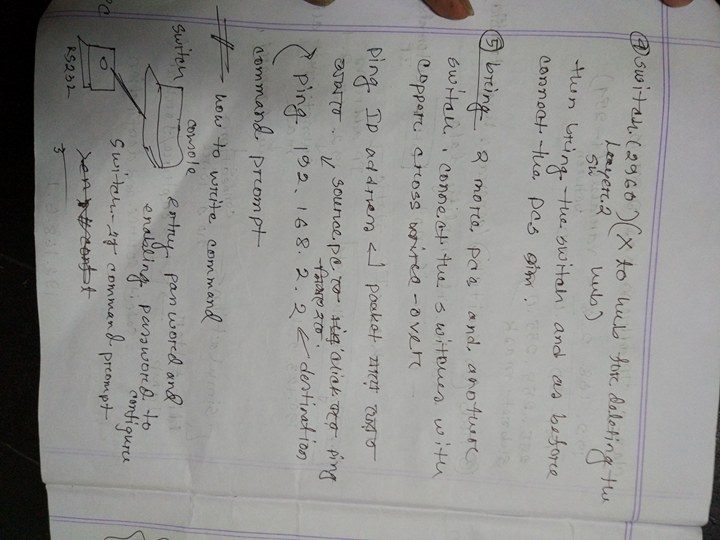 ④ Switch (2960) (X to hub for deleting the hub)
Layer 2
SW
then bring the switch and as before
connect the pcs
⑤ bring 2 more pcs and another
switch, connect the switches with
copper cross wires-over
Ping IP address ← packet
source pc click ping
ping 192.168.2.2 ← destination
command prompt
# how to write command
switch console
entry password and
enabling password to
configure
PC
RS232
Switch command prompt